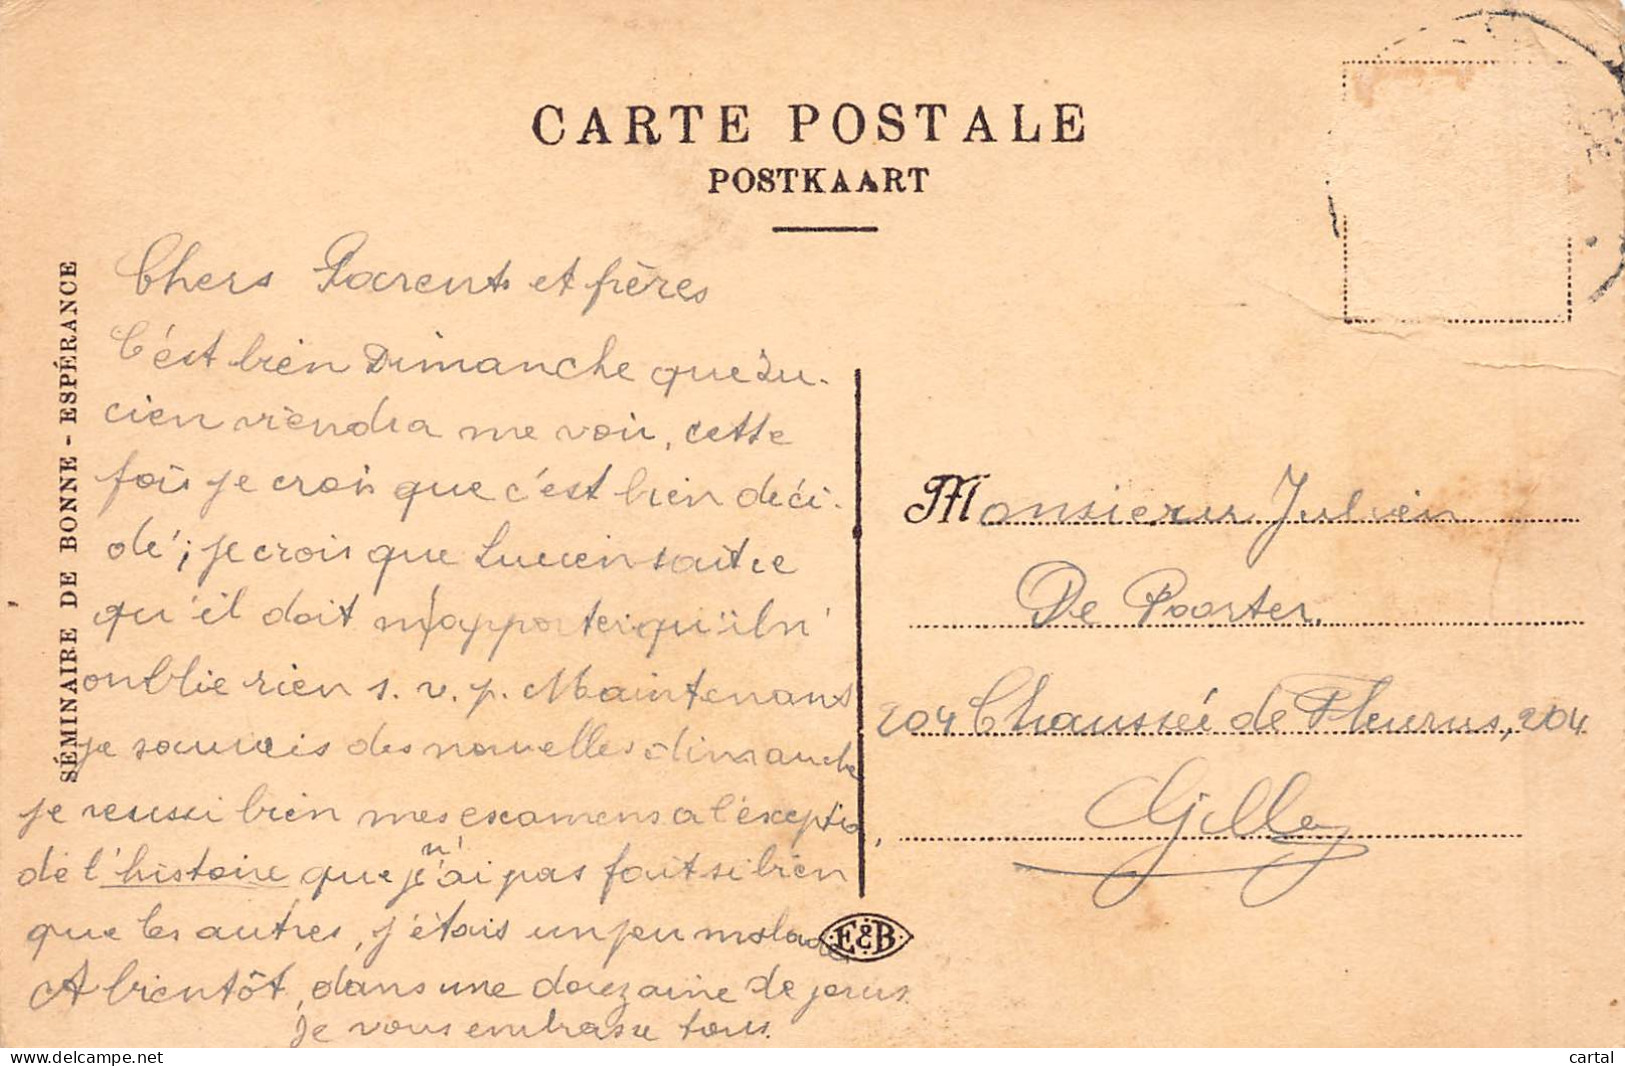 CARTE POSTALE
POSTKAART
SÉMINAIRE DE BONNE - ESPÉRANCE
Chers Parents et frères
C'est bien Dimanche que Lu-
cien viendra me voir, cette
fois je crois que c'est bien déci-
dé; je crois que Lucien sait ce
qu'il doit m'apporter qu'il n'
oublie rien s. v. p. Maintenant
je saurais des nouvelles dimanche
je reussi bien mes examens a l'exceptio
de l'histoire que je n'ai pas fait si bien
que les autres, j'étais un peu malade
A bientôt, dans une douzaine de jours
Je vous embrasse tous.
Monsieur Julien
De Poorter.
204 Chaussée de Fleurus, 204
Gilly
E&B
cartal